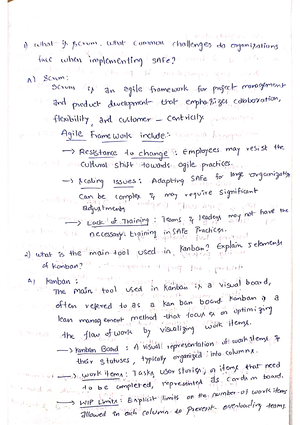 1) what is scrum. what common challenges do organizations
face when implementing SAFe?
A) Scrum:
Scrum is an agile framework for project management
and product development that emphasizes collaboration,
flexibility, and customer-centricity.
Agile Framework include:-
→ Resistance to change : Employees may resist the
cultural shift towards agile practices.
→ Scaling Issues: Adapting SAFe for large organization
can be complex & may require significant
adjustments
→ Lack of Training : Teams & leaders may not have the
necessary training in SAFe Practices.
2) what is the main tool used in Kanban? Explain 5 elements
of Kanban?
A) Kanban :
The main tool used in Kanban is a visual board,
often refered to as a kan ban board Kanban is a
lean management method that focus on optimizing
the flow of work by visualizing work items.
→ Kanban Board : A visual representation of work items &
their statuses, typically organized into columns.
→ work items: Tasks, user stories, or items that need
to be completed, represented as cards on board.
→ WIP Limits: Explicit limits on the number of work items
allowed in each column to prevent overloading teams.